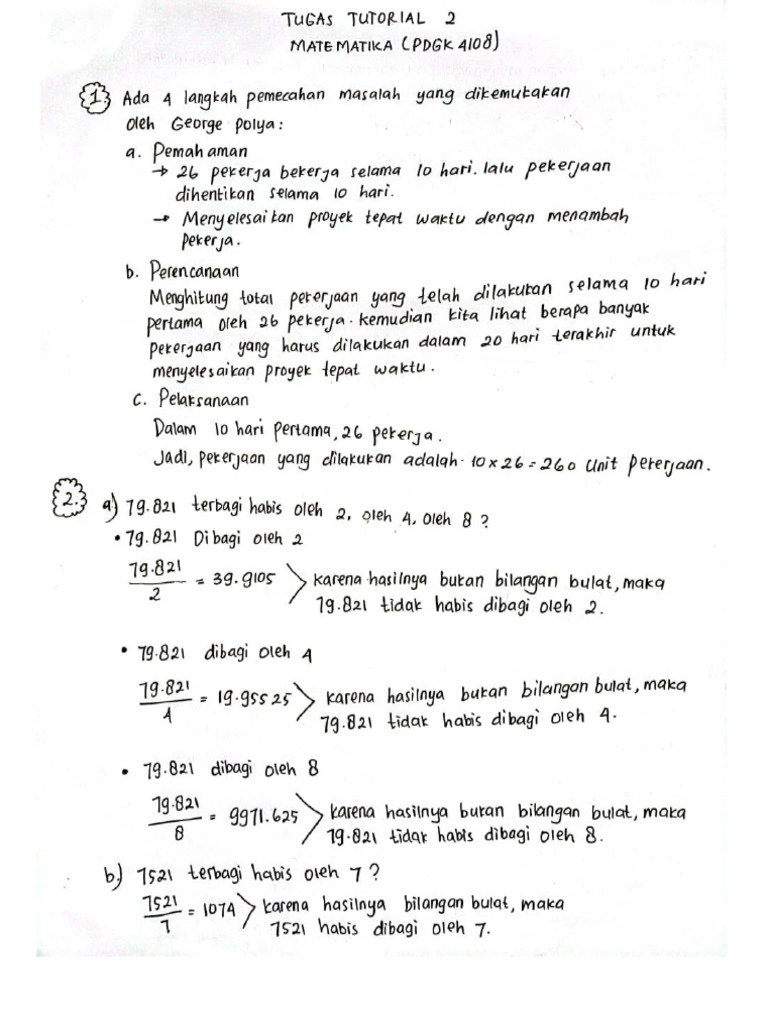 TUGAS TUTORIAL 2
MATEMATIKA (PDGK 4108)
1. Ada 4 langkah pemecahan masalah yang dikemukakan
oleh George Polya :
a. Pemahaman
→ 26 pekerja bekerja selama 10 hari. lalu pekerjaan
dihentikan selama 10 hari.
→ Menyelesaikan proyek tepat waktu dengan menambah
pekerja.
b. Perencanaan
Menghitung total pekerjaan yang telah dilakukan selama 10 hari
pertama oleh 26 pekerja. kemudian kita lihat berapa banyak
pekerjaan yang harus dilakukan dalam 20 hari terakhir untuk
menyelesaikan proyek tepat waktu.
c. Pelaksanaan
Dalam 10 hari pertama, 26 pekerja.
Jadi, pekerjaan yang dilakukan adalah. 10 x 26 = 260 unit pekerjaan.
2. a) 79.821 terbagi habis oleh 2, oleh 4, oleh 8 ?
• 79.821 Dibagi oleh 2
79.821 / 2 = 39.9105 > karena hasilnya bukan bilangan bulat, maka
79.821 tidak habis dibagi oleh 2.
• 79.821 dibagi oleh 4
79.821 / 4 = 19.95525 > karena hasilnya bukan bilangan bulat, maka
79.821 tidak habis dibagi oleh 4.
• 79.821 dibagi oleh 8
79.821 / 8 = 9971.625 > karena hasilnya bukan bilangan bulat, maka
79.821 tidak habis dibagi oleh 8.
b.) 7521 terbagi habis oleh 7 ?
7521 / 7 = 1074 > karena hasilnya bilangan bulat, maka
7521 habis dibagi oleh 7.